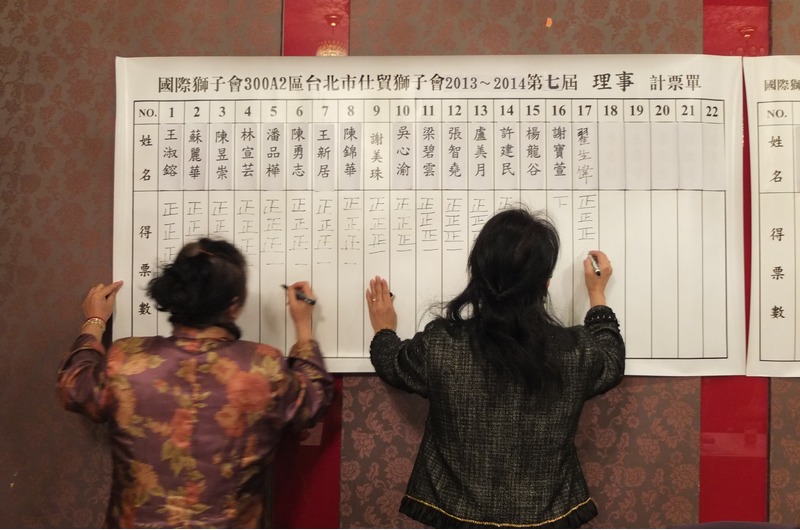 國際獅子會300A2區台北市仕貿獅子會2013～2014第七屆 理事 計票單
國際獅
NO. 1 2 3 4 5 6 7 8 9 10 11 12 13 14 15 16 17 18 19 20 21 22
NO.
姓名 王淑鎔 蘇麗華 陳昱崇 林宣芸 潘品樺 陳勇志 王新居 陳錦華 謝美珠 吳心渝 梁碧雲 張智堯 盧美月 許建民 楊龍谷 謝寶萱 翟生偉
姓名
得票數 正 正 正 正 正 正 正 正 正 正 正 正 正 正 下 正
正 正 正 正 正 正 正 正 正 正 正 正 正 正
正 正 正 正 正 正 正 正 正 正
得票數